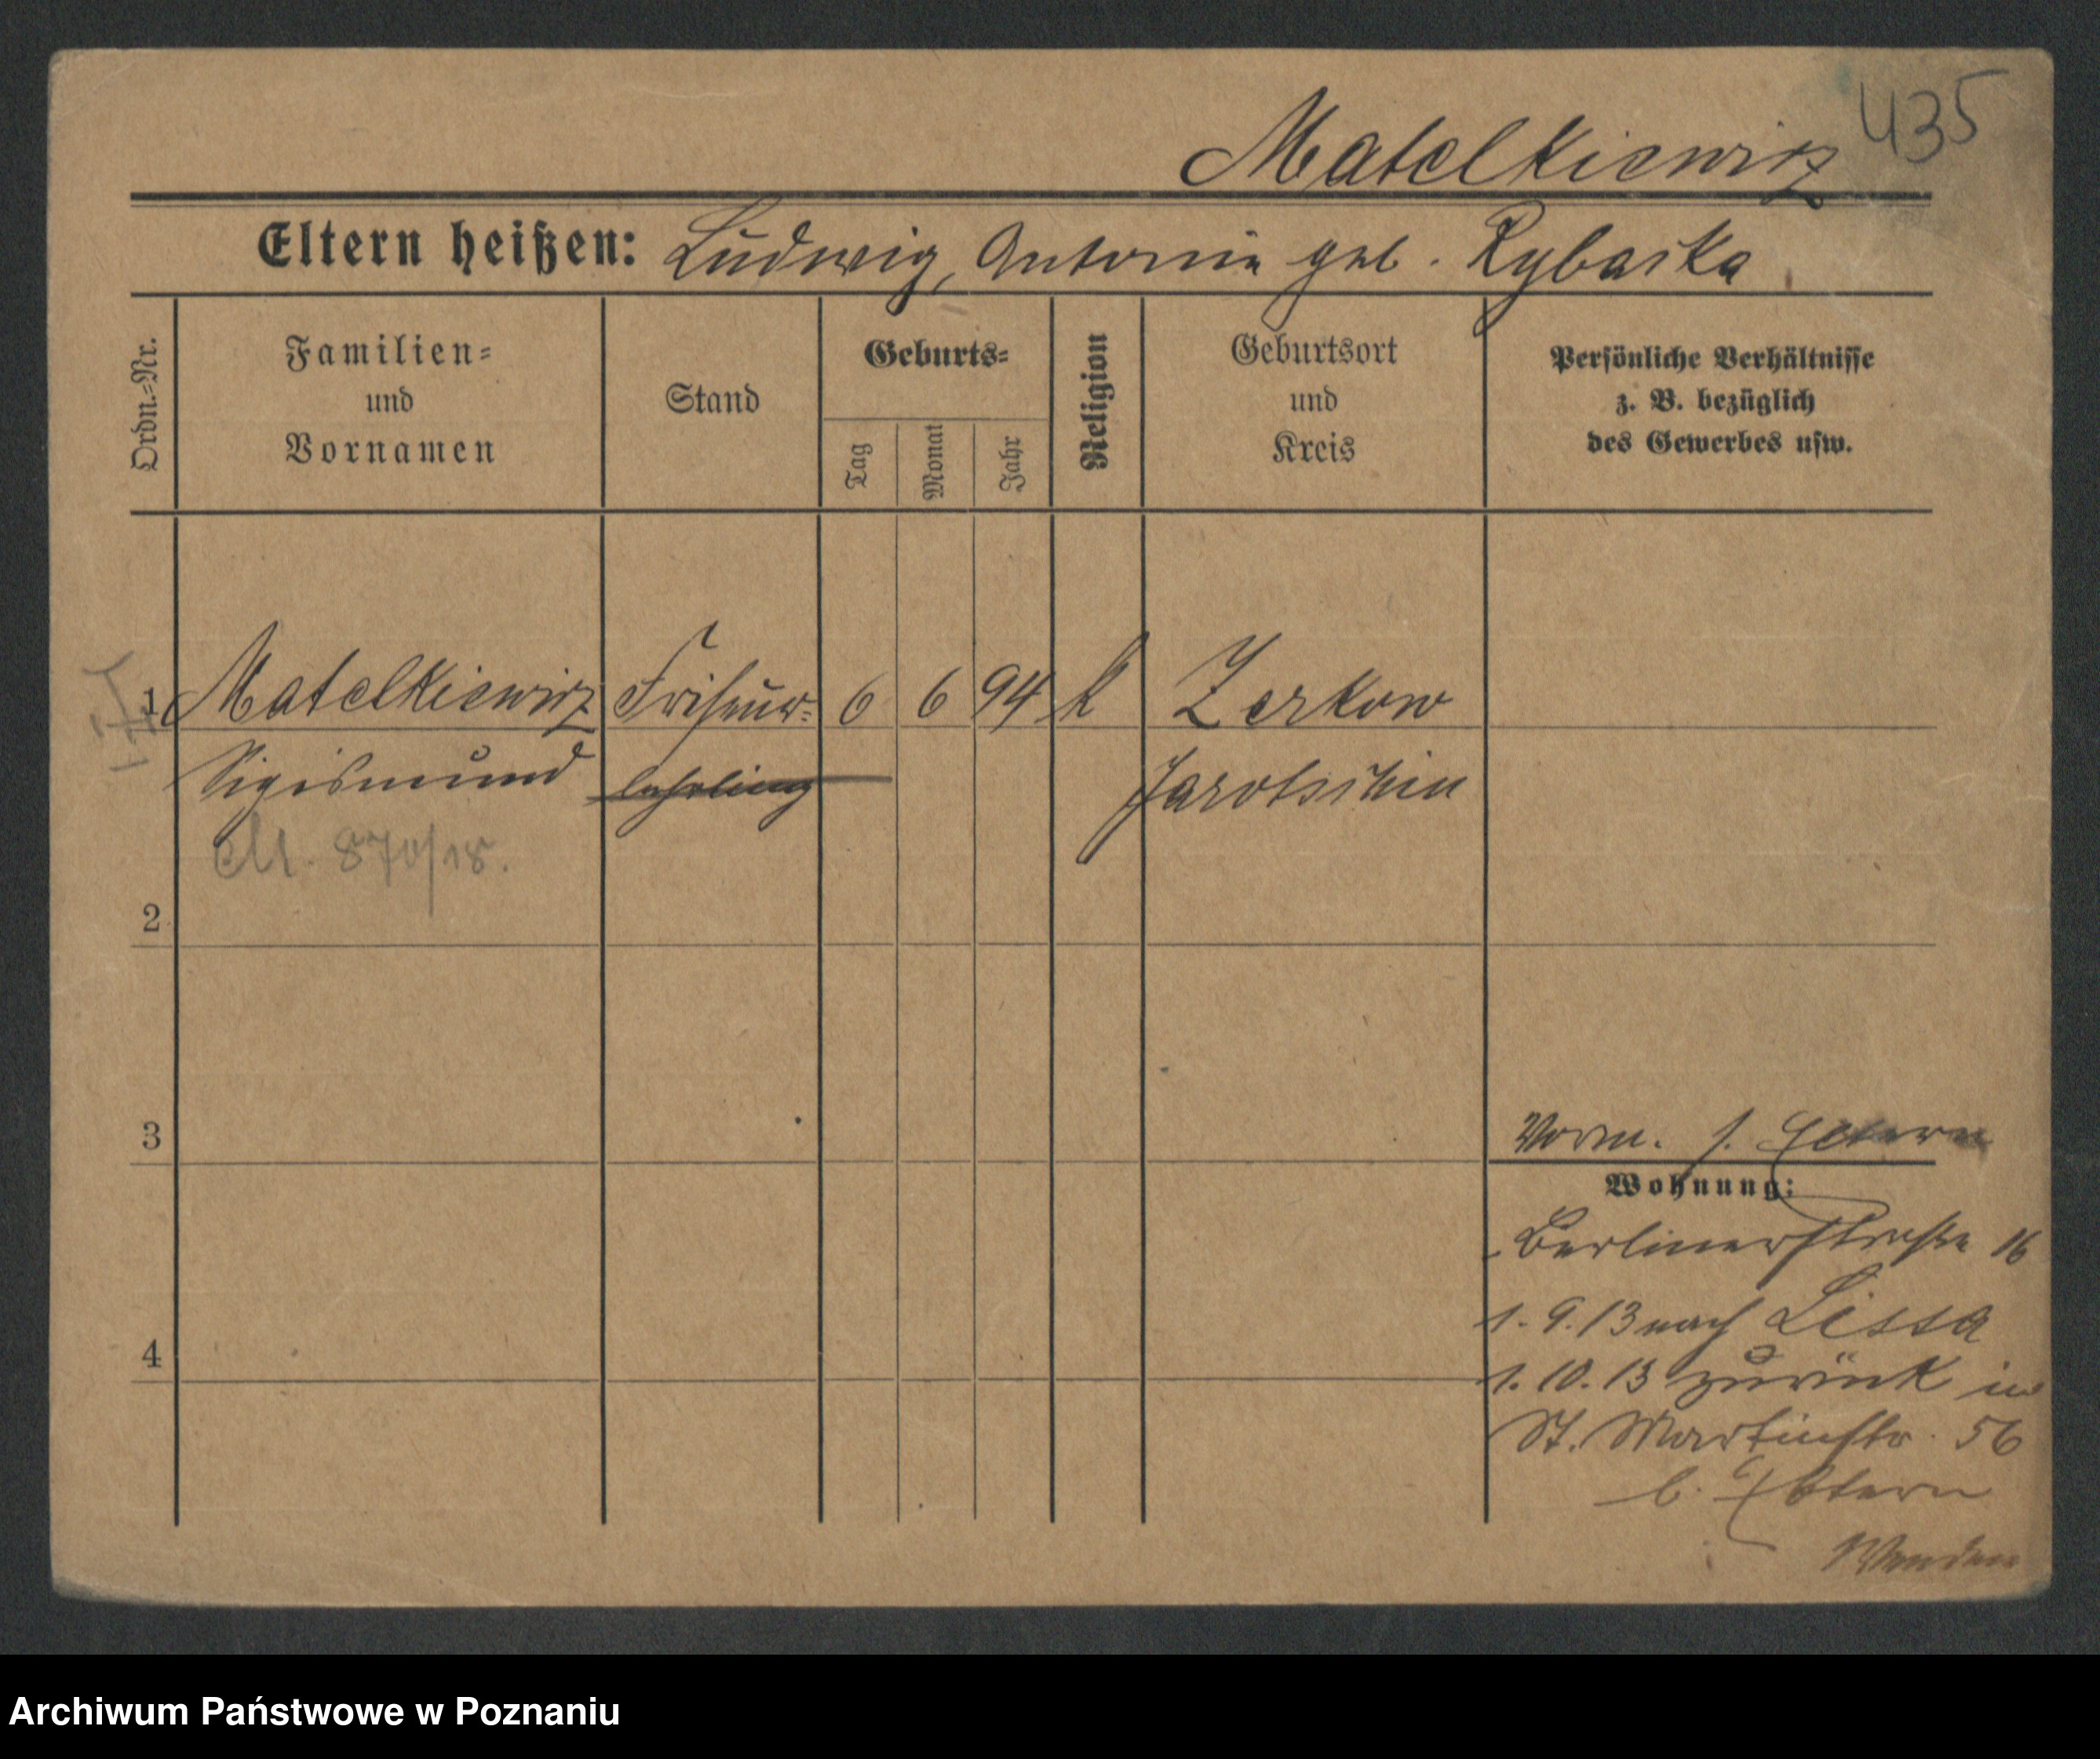 435
Matelkiewicz
Eltern heißen: Ludwig, Antonie geb. Rybarska
Ordn.=Nr.
Familien=
und
Vornamen
Stand
Geburts=
Tag
Monat
Jahr
Religion
Geburtsort
und
Kreis
Persönliche Verhältnisse
z. B. bezüglich
des Gewerbes usw.
1 Matelkiewicz Friseur= 6 6 94 k Zerkow
Sigismund lehrling Jarotschin
M. 870/18.
2
3
Vorm. s. Eltern
Wohnung:
Berlinerstraße 16
1. 9. 13 nach Lissa
4
1. 10. 13 zurück in
St. Martinstr. 56
b. Eltern
Wenden